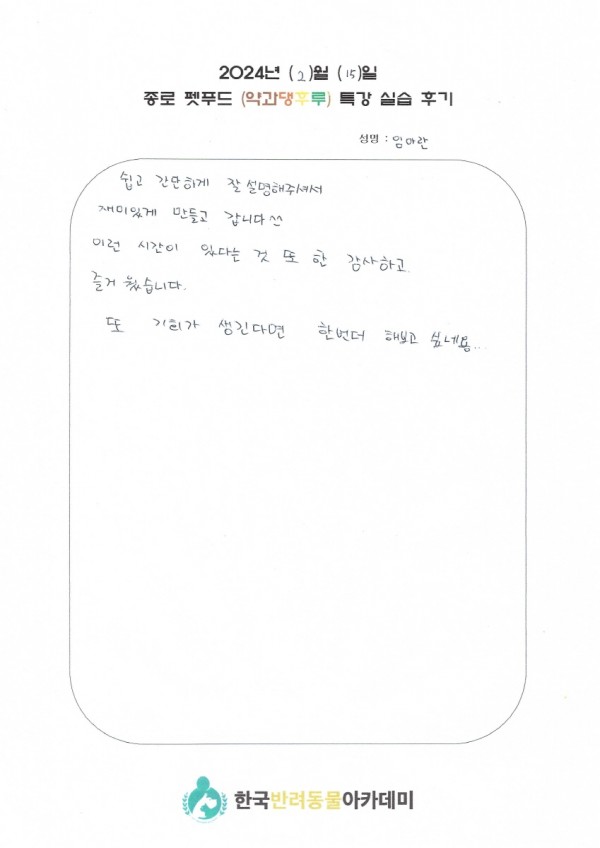 2024년 (2)월 (15)일
종로 펫푸드 (약과댕후루) 특강 실습 후기
성명 : 임아란
쉽고 간단하게 잘 설명해주셔서
재미있게 만들고 갑니다^^
이런 시간이 있다는 것 또 한 감사하고
즐거 웠습니다.
또 기회가 생긴다면 한번더 해보고 싶네용...
한국반려동물아카데미